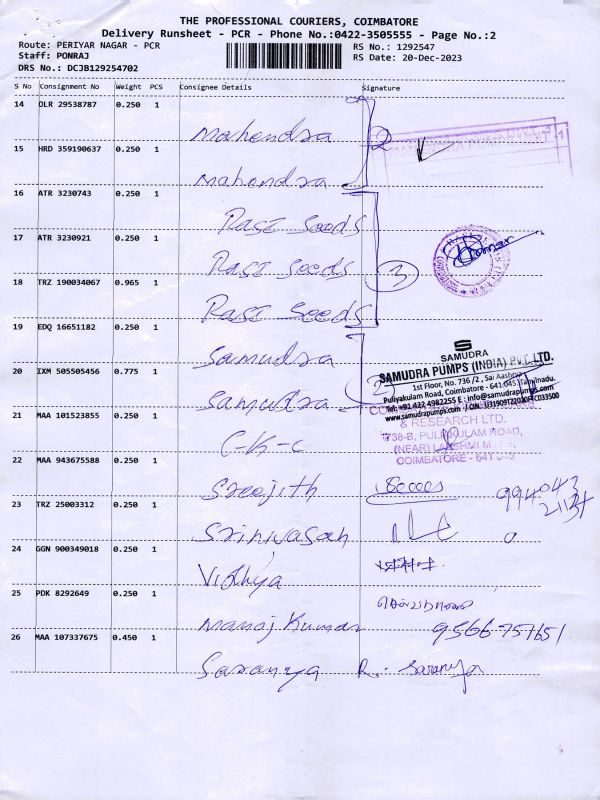 THE PROFESSIONAL COURIERS, COIMBATORE
Delivery Runsheet - PCR - Phone No.:0422-3505555 - Page No.:2
Route: PERIYAR NAGAR - PCR
RS No.: 1292547
Staff: PONRAJ
RS Date: 20-Dec-2023
DRS No.: DCJB129254702
S No Consignment No Weight PCS Consignee Details Signature
14 DLR 29538787 0.250 1
Mahendra 2
15 HRD 359190637 0.250 1
Mahendra
16 ATR 3230743 0.250 1
Rasi Seeds
17 ATR 3230921 0.250 1
Rasi Seeds 3
18 TRZ 190034067 0.965 1
Rasi Seeds
19 EDQ 16651182 0.250 1
Samudra
SAMUDRA
SAMUDRA PUMPS (INDIA) PVT. LTD.
1st Floor, No. 736 /2 , Sai Aashraya
Puliyakulam Road, Coimbatore - 641 045 Tamilnadu.
Tel: +91 422 4982255 E : info@samudrapumps.com
www.samudrapumps.com
20 IXM 505505456 0.775 1
Samudra 2
21 MAA 101523855 0.250 1
C-K-C
& RESEARCH LTD.
1738-B, PULIAKULAM ROAD,
(NEAR) LAKSHMI
COIMBATORE - 641 045
22 MAA 943675588 0.250 1
Sreejith
994043
21137
23 TRZ 25003312 0.250 1
Srinivasan
24 GGN 900349018 0.250 1
Vidhya
25 PDK 8292649 0.250 1
Manoj Kumar 9566757651
26 MAA 107337675 0.450 1
Saranya R. Saranya